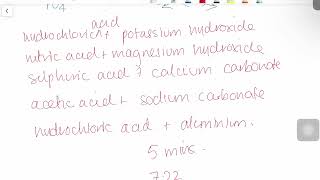 acid
hydrochloric + potassium hydroxide
nitric acid + magnesium hydroxide
sulphuric acid & calcium carbonate
acetic acid + sodium carbonate
hydrochloric acid + aluminium.
5 mins.
7.22